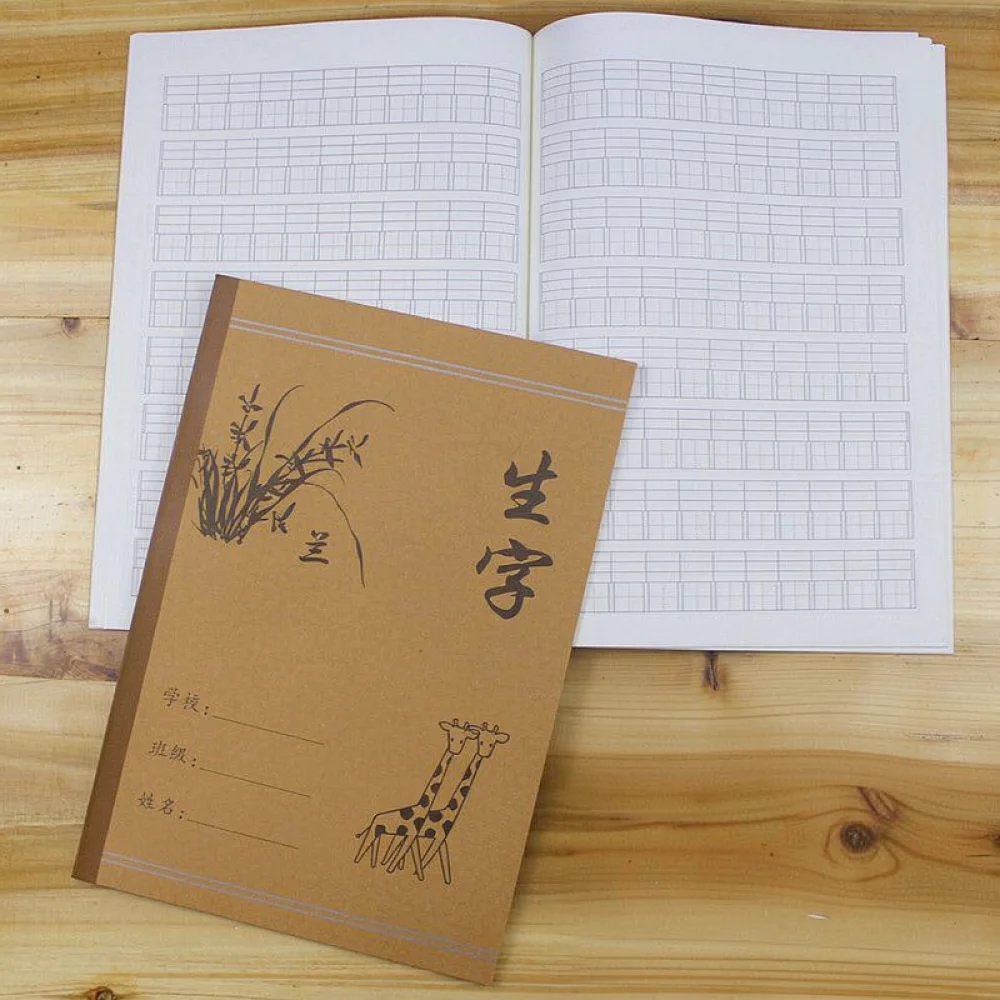 生字
兰
学校:
班级:
姓名: